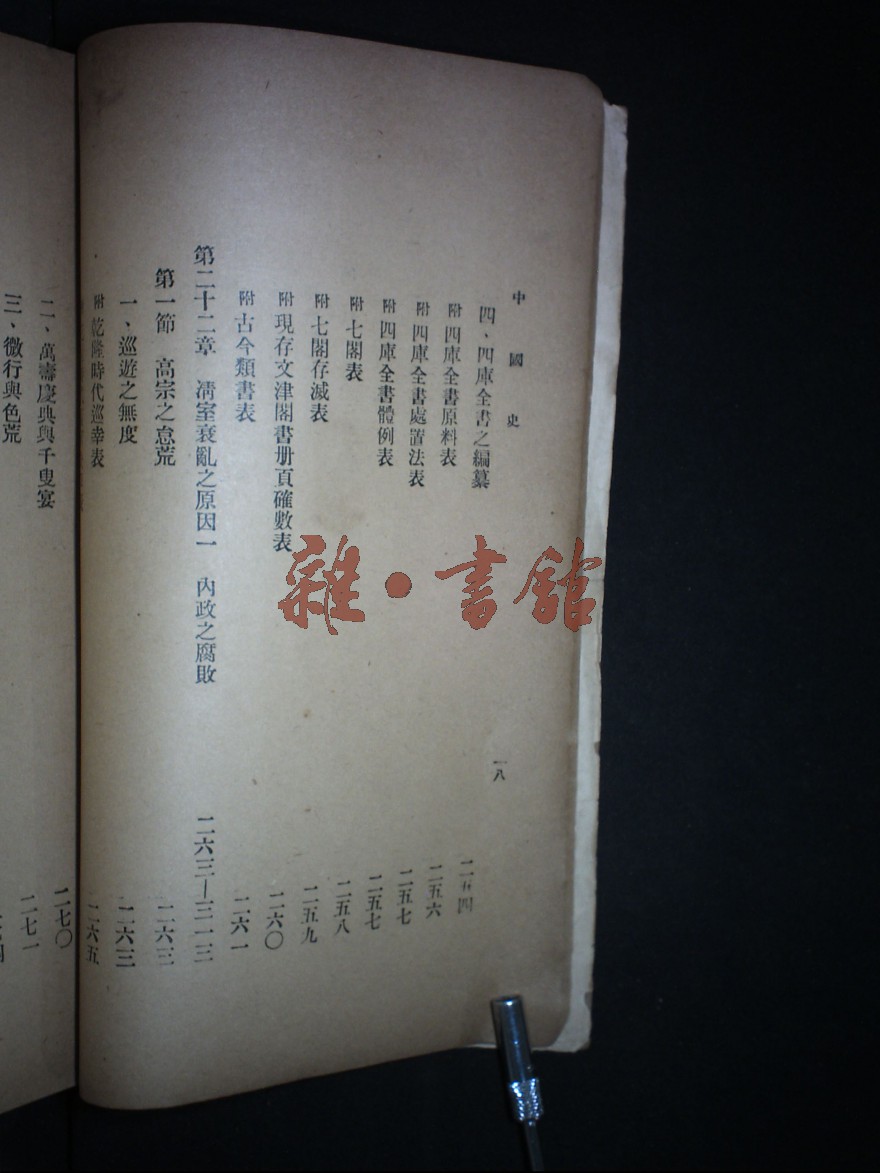 中國史
一八
四、四庫全書之編纂 二五四
附 四庫全書原料表 二五六
附 四庫全書處置法表 二五七
附 四庫全書體例表 二五七
附 七閣表 二五八
附 七閣存滅表 二五九
附 現存文津閣書册頁確數表 二六〇
附 古今類書表 二六一
第二十二章 淸室衰亂之原因一 內政之腐敗 二六三—三一三
第一節 高宗之怠荒 二六三
一、巡遊之無度 二六三
附 乾隆時代巡幸表 二六五
二、萬壽慶典與千叟宴 二七〇
三、微行與色荒 二七一
雜·書館